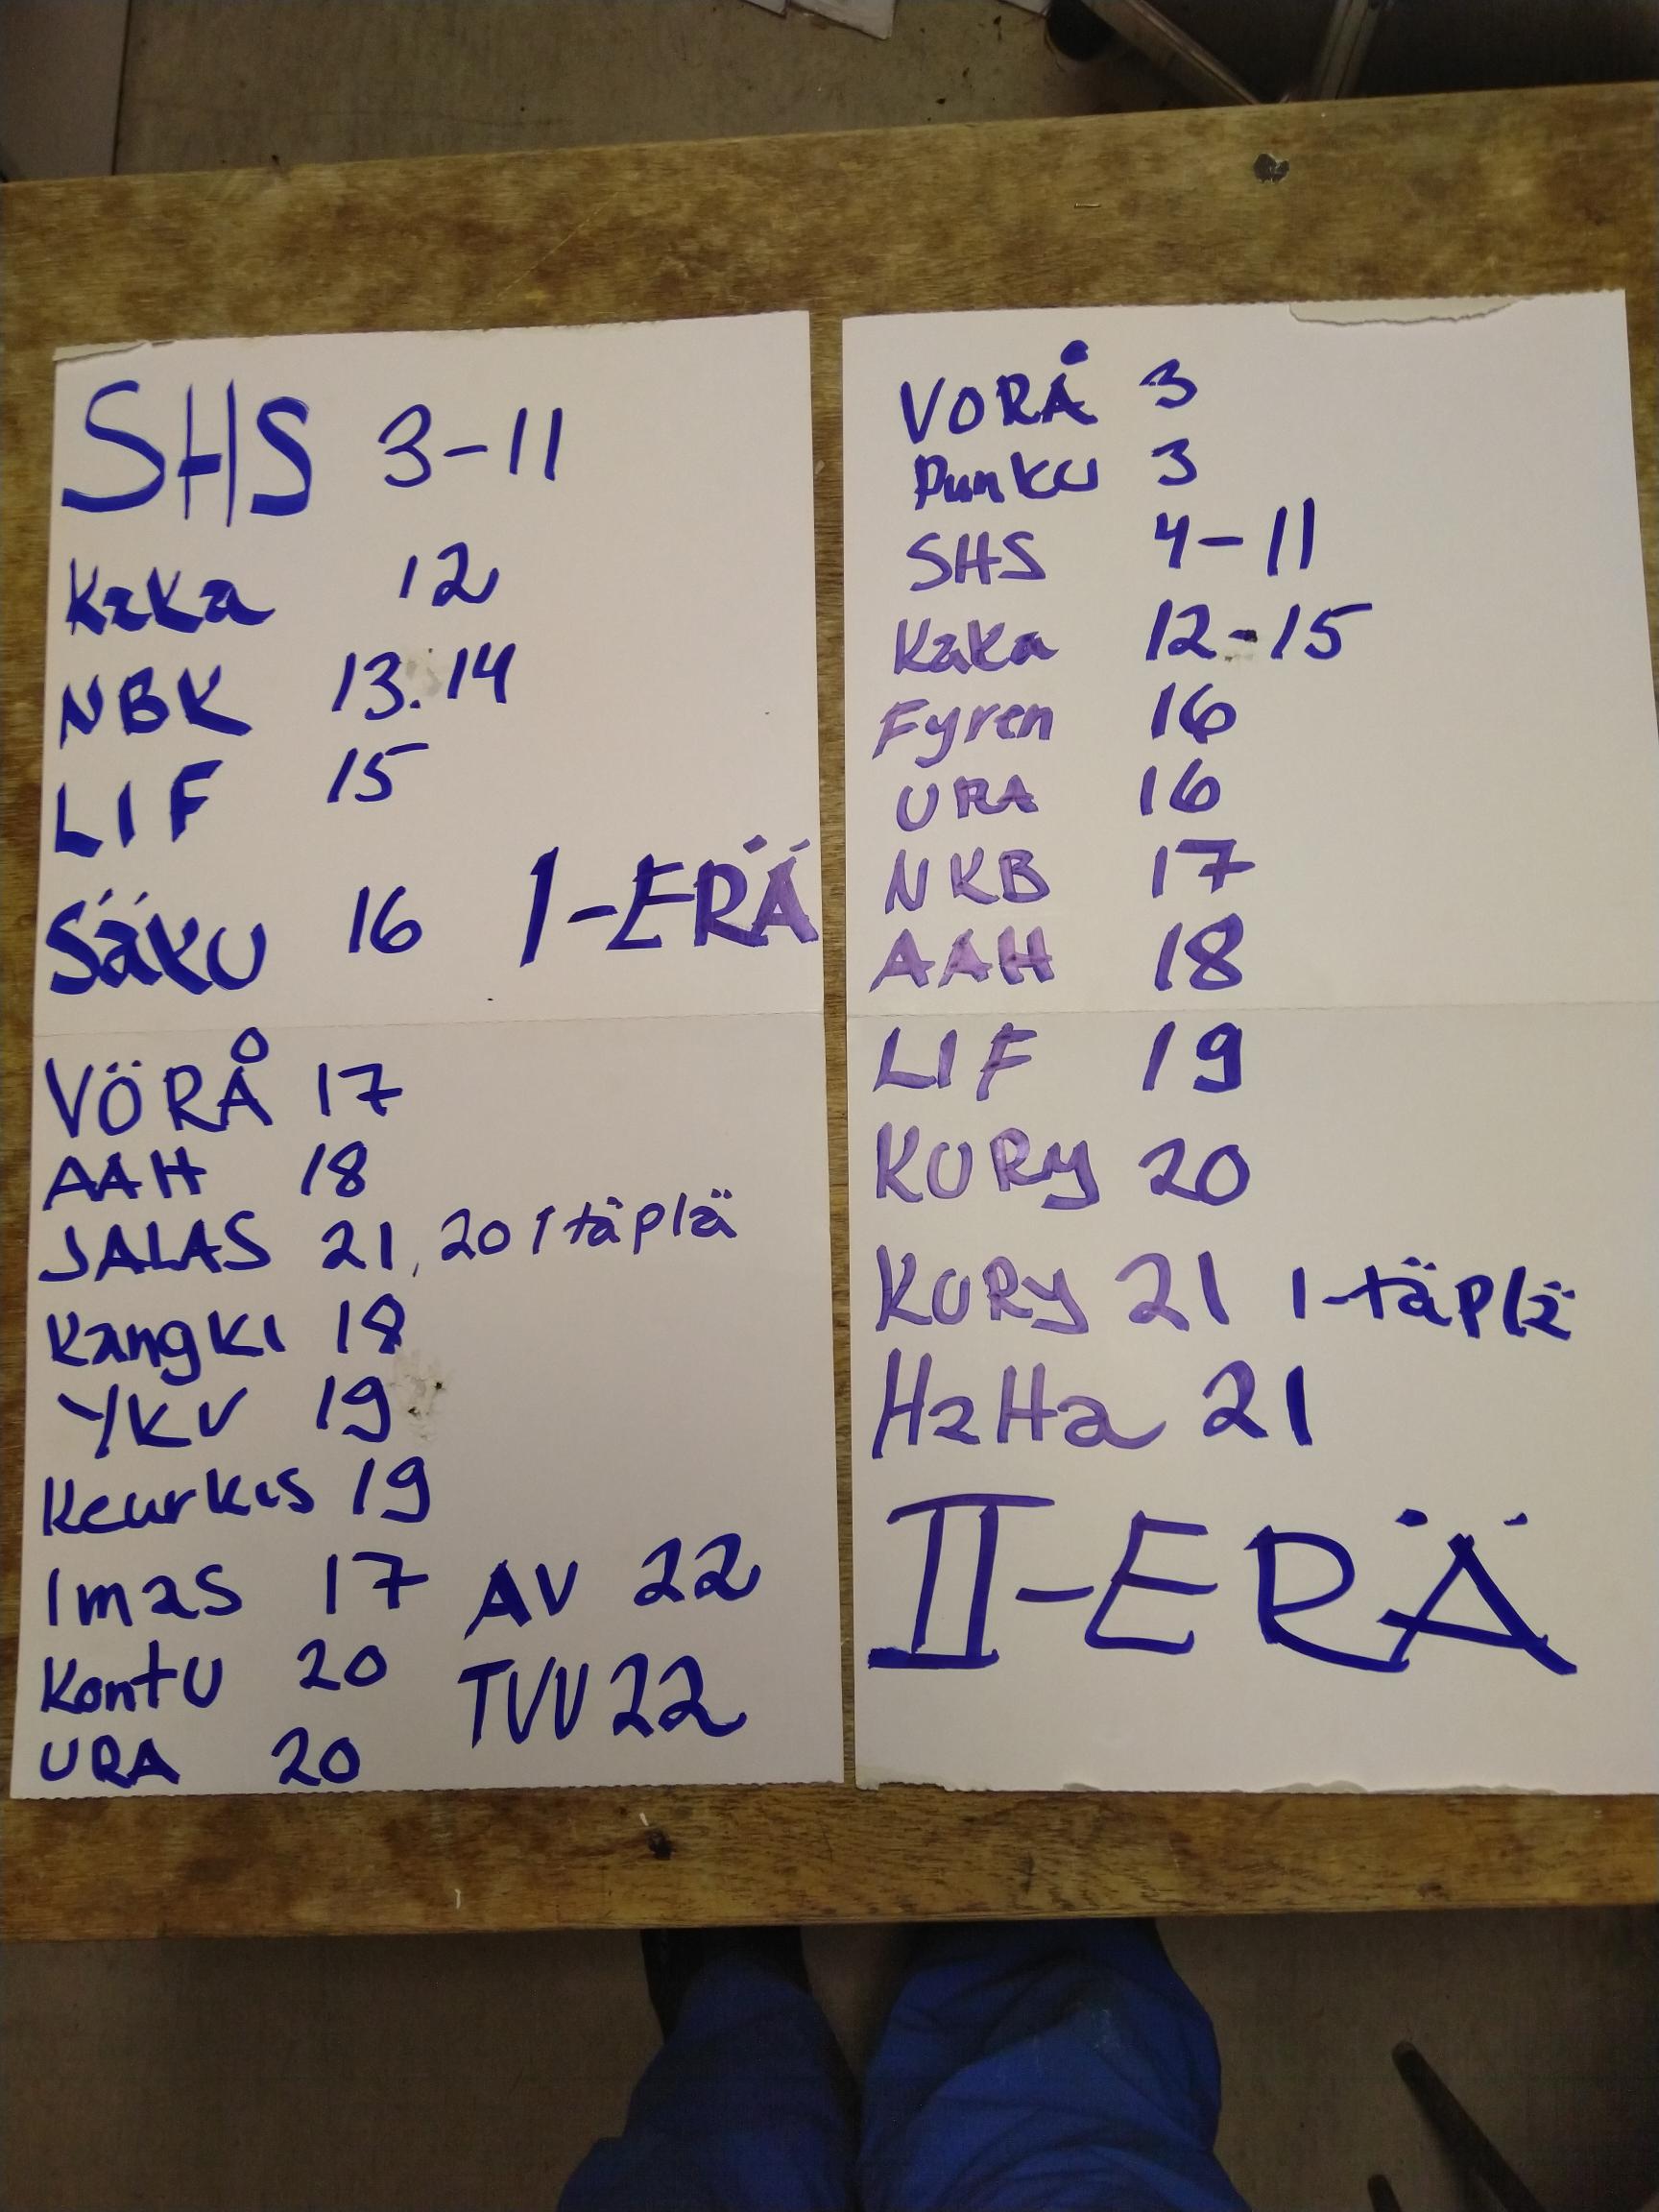 SHS 3-11
Kaka 12
NBK 13.14
LIF 15
Säku 16 I-ERÄ
VÖRÅ 17
AAH 18
JALAS 21, 20 1 täplä
Kangki 18
YKV 19
Keurkis 19
Imas 17 AV 22
Kontu 20 TVU 22
URA 20
VORÅ 3
Punku 3
SHS 4-11
Kaka 12-15
Fyren 16
URA 16
NKB 17
AAH 18
LIF 19
KURY 20
KURY 21 1-täplä
HaHa 21
II-ERÄ